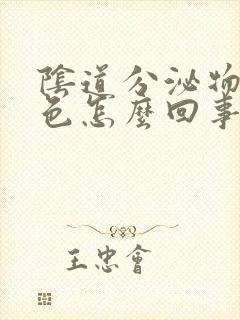 陰道分泌物
色怎麼回事
王忠會